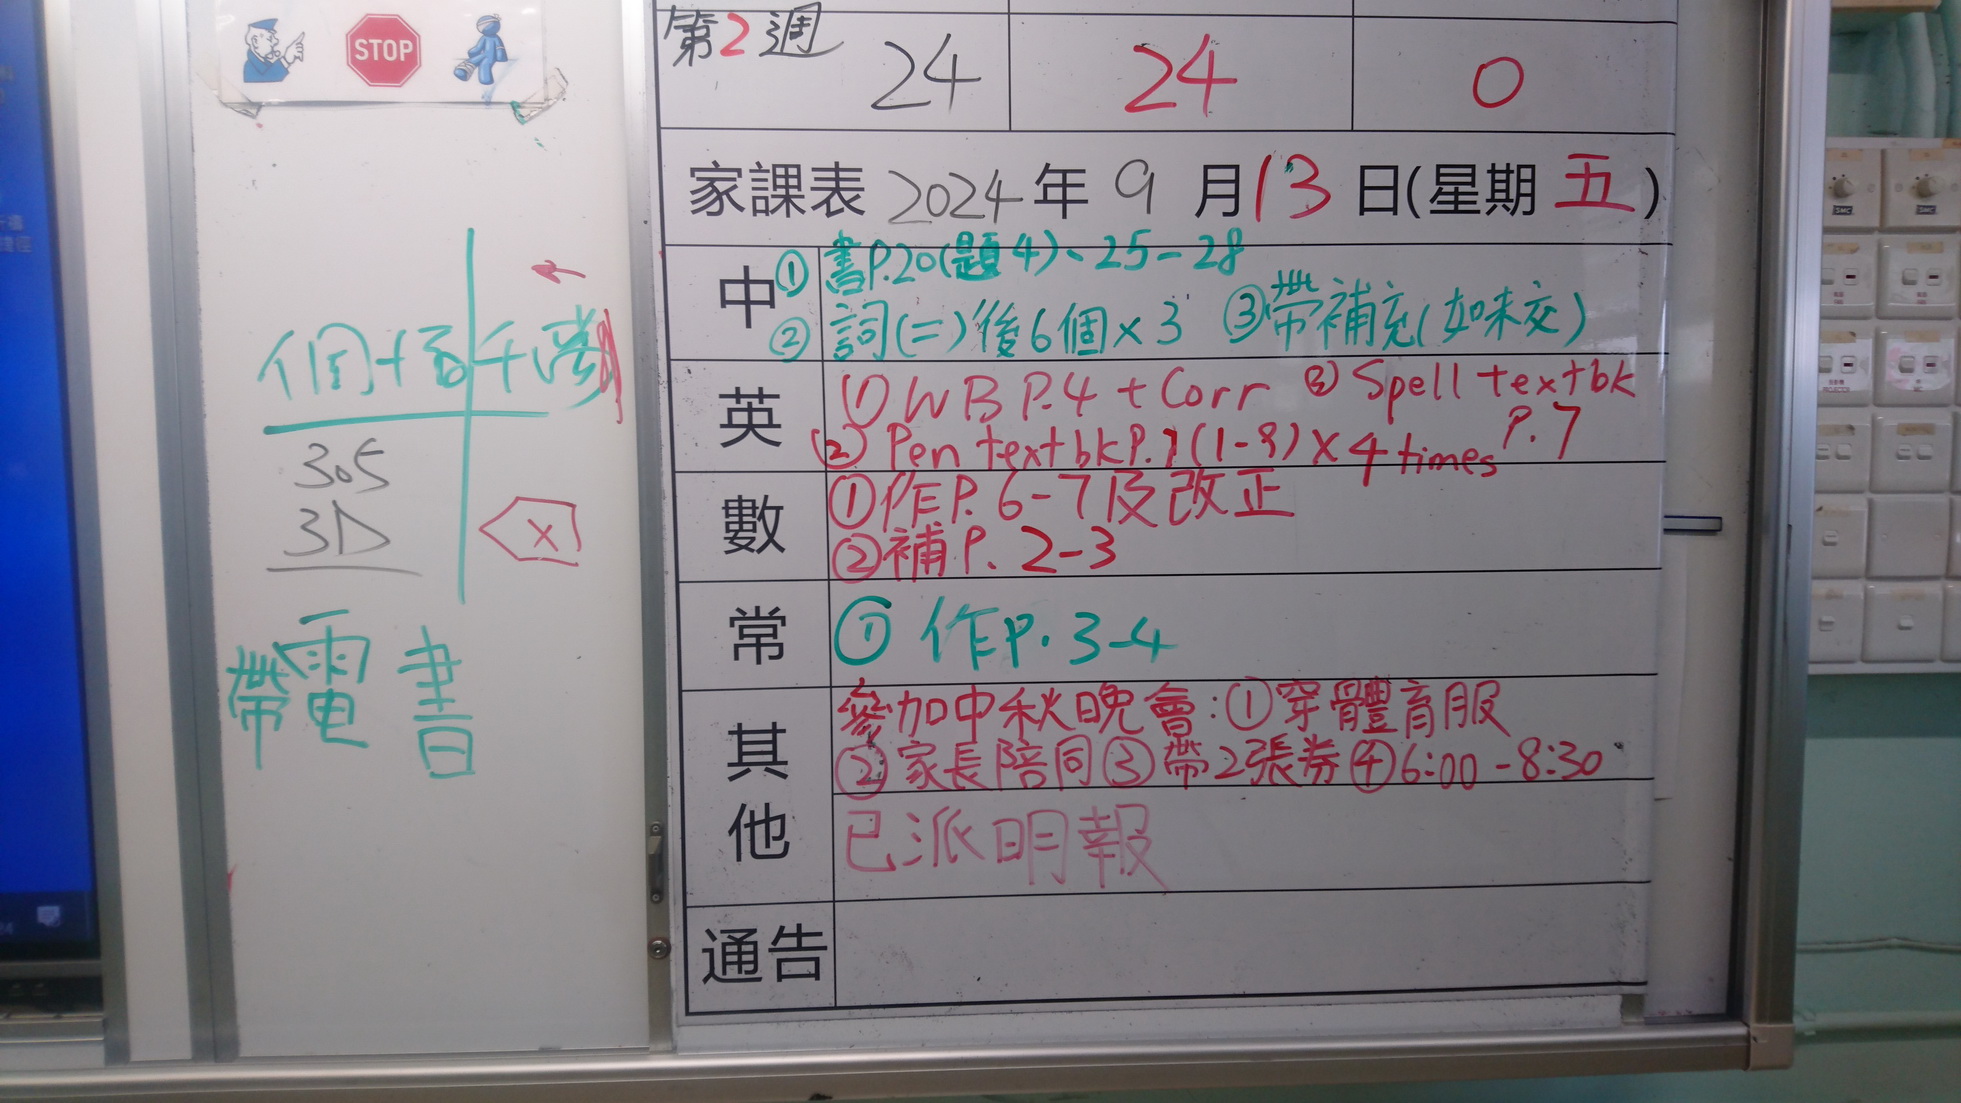 STOP
第2週 24 24 0
家課表 2024年9月13日(星期五)
中 ①書P.20(題4)、25-28
②詞(二)後6個×3 ③帶補充(如未交)
英 ①WB P.4 + Corr ③Spell textbk P.7
②Pen textbk P.7(1-8)×4 times
數 ①作P.6-7及改正
②補P.2-3
常 ①作P.3-4
其他 參加中秋晚會:①穿體育服
②家長陪同③帶2張券④6:00-8:30
已派明報
通告
個十百千
305
3D
x
帶電書